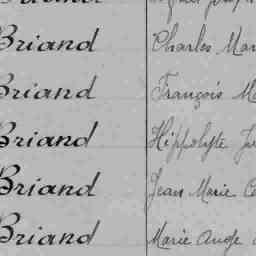 Briand Charles
Briand François
Briand Hippolyte
Briand Jean Marie
Briand Marie Ange